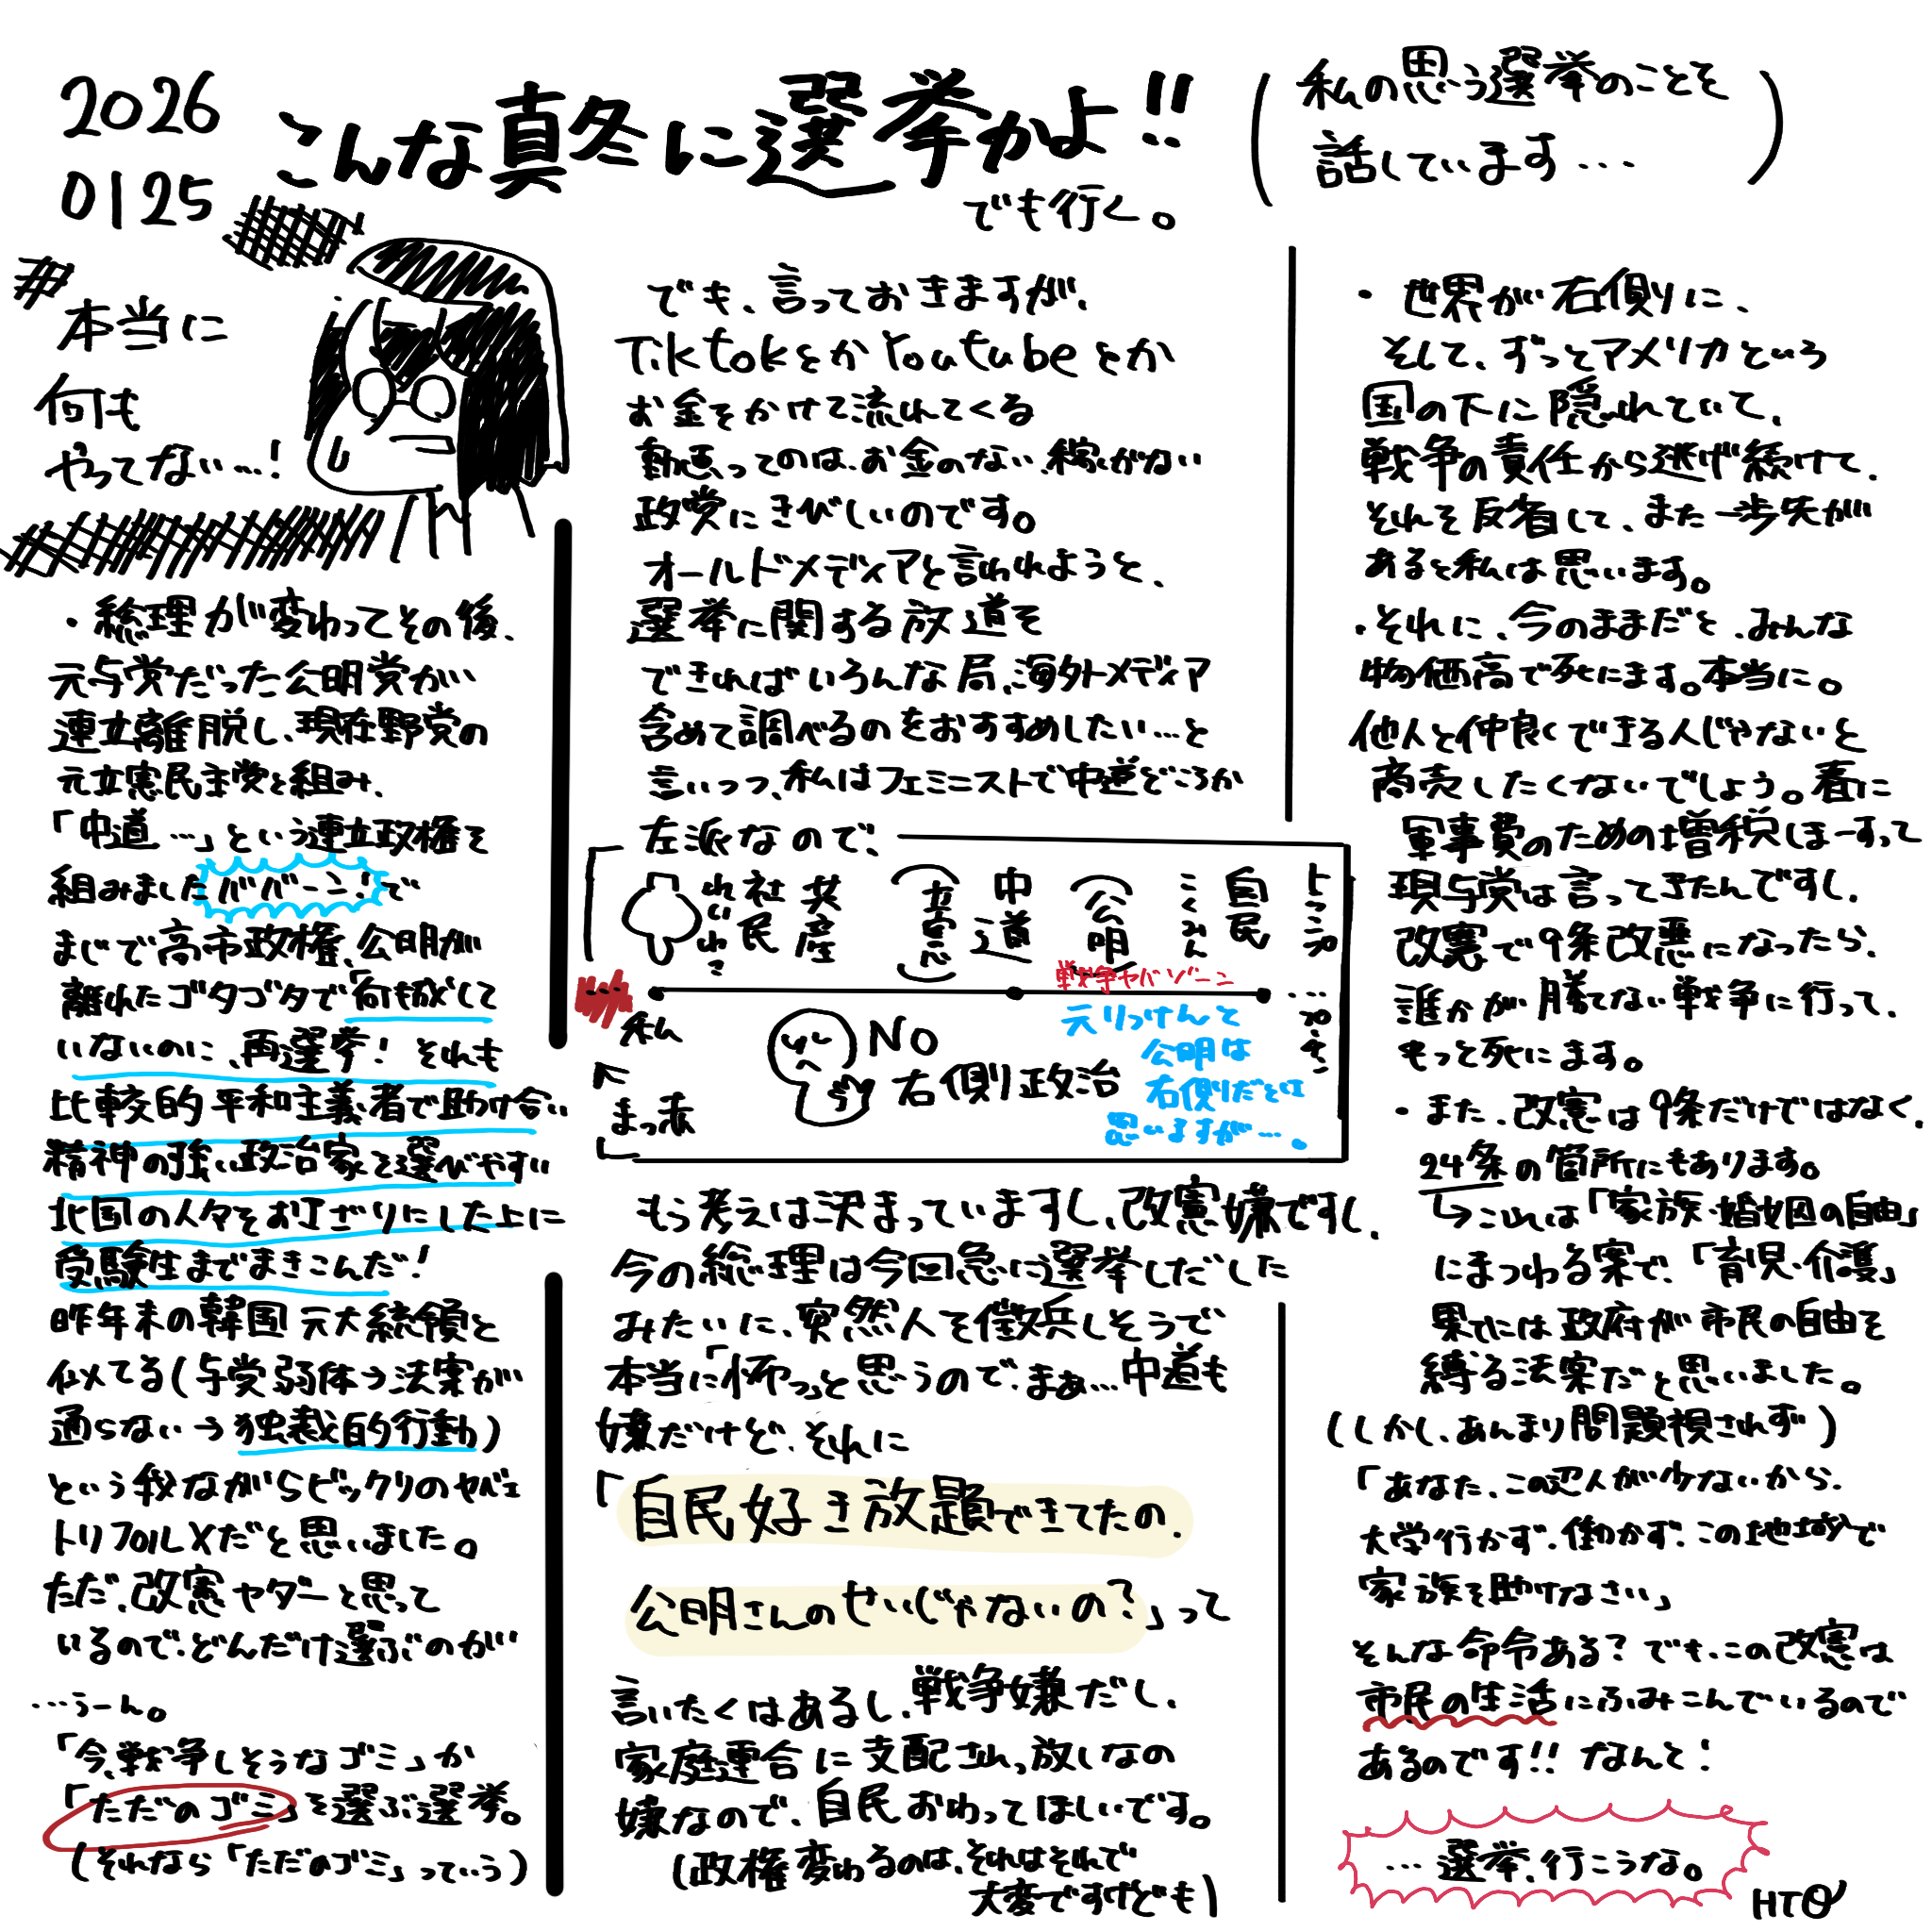 2026
0125
こんな真冬に選挙かよ!!
でも行く。
(私の思う選挙のことを
話しています…)
本当に
何も
やってない…!
・総理が変わってその後、
元与党だった公明党が
連立離脱し、現在野党の
元立憲民主党と組み、
「中道…」という連立政権を
組みましたババーン!で
まじで高市政権、公明が
離れたゴタゴタで「何も成して
いないのに、再選挙! それも
比較的平和主義者で助け合い
精神の強い政治家を選びやすい
北国の人々をおざなりにした上に
受験生までまきこんだ!
昨年末の韓国元大統領と
似てる(与党弱体→法案が
通らない→独裁的行動)
という我ながらビックリのヤバェ
トリプルXだと思いました。
ただ、改憲ヤダーと思って
いるので、どんだけ選ぶのが
…うーん。
「今、戦争しそうなゴミ」か
「ただのゴミ」を選ぶ選挙。
(それなら「ただのゴミ」っていう)
でも、言っておきますが、
TiktokとかYoutubeとか
お金をかけて流れてくる
動画ってのは、お金のない、稼がない
政党にきびしいのです。
オールドメディアと言われようと、
選挙に関する放道を
できればいろんな局、海外メディア
含めて調べるのをおすすめしたい…と
言いつつ、私はフェミニストで中道どころか
左派なので、
れいわ
社民
共産
(立憲)
中道
(公明)
こくみん
自民
戦争ヤバゾーン
私
「まっ赤」
NO
右側政治
元りっけんと
公明は
右側だとは
思いますが…。
もう考えは決まっていますし、改憲嫌ですし、
今の総理は今回急に選挙しだした
みたいに、突然人を徴兵しそうで
本当に「怖っ」と思うので、まぁ…中道も
嫌だけど、それに
「自民好き放題できてたの、
公明さんのせいじゃないの?」って
言いたくはあるし、戦争嫌だし、
家庭連合に支配されっ放しなの
嫌なので、自民おわってほしいです。
(政権変わるのは、それはそれで
大変ですけども)
・世界が右側に、
そして、ずっとアメリカという
国の下に隠れていて、
戦争の責任から逃げ続けて、
それを反省して、また一歩先が
あると私は思います。
・それに、今のままだと、みんな
物価高で死にます。本当に。
他人と仲良くできる人じゃないと
商売したくないでしょう。春に
軍事費のための増税しまーすって
現与党は言ってきたんですし、
改憲で9条改悪になったら、
誰かが勝てない戦争に行って、
もっと死にます。
・また、改憲は9条だけではなく、
24条の箇所にもあります。
↳これは「家族・婚姻の自由」
にまつわる案で、「育児・介護」
果てには政府が市民の自由を
縛る法案だと思いました。
(しかし、あんまり問題視されず)
「あなた、この辺人が少ないから、
大学行かず、働かず、この地域で
家族を助けなさい」
そんな命令ある? でも、この改憲は
市民の生活にふみこんでいるので
あるのです!! なんと!
…選挙、行こうな。
HTO